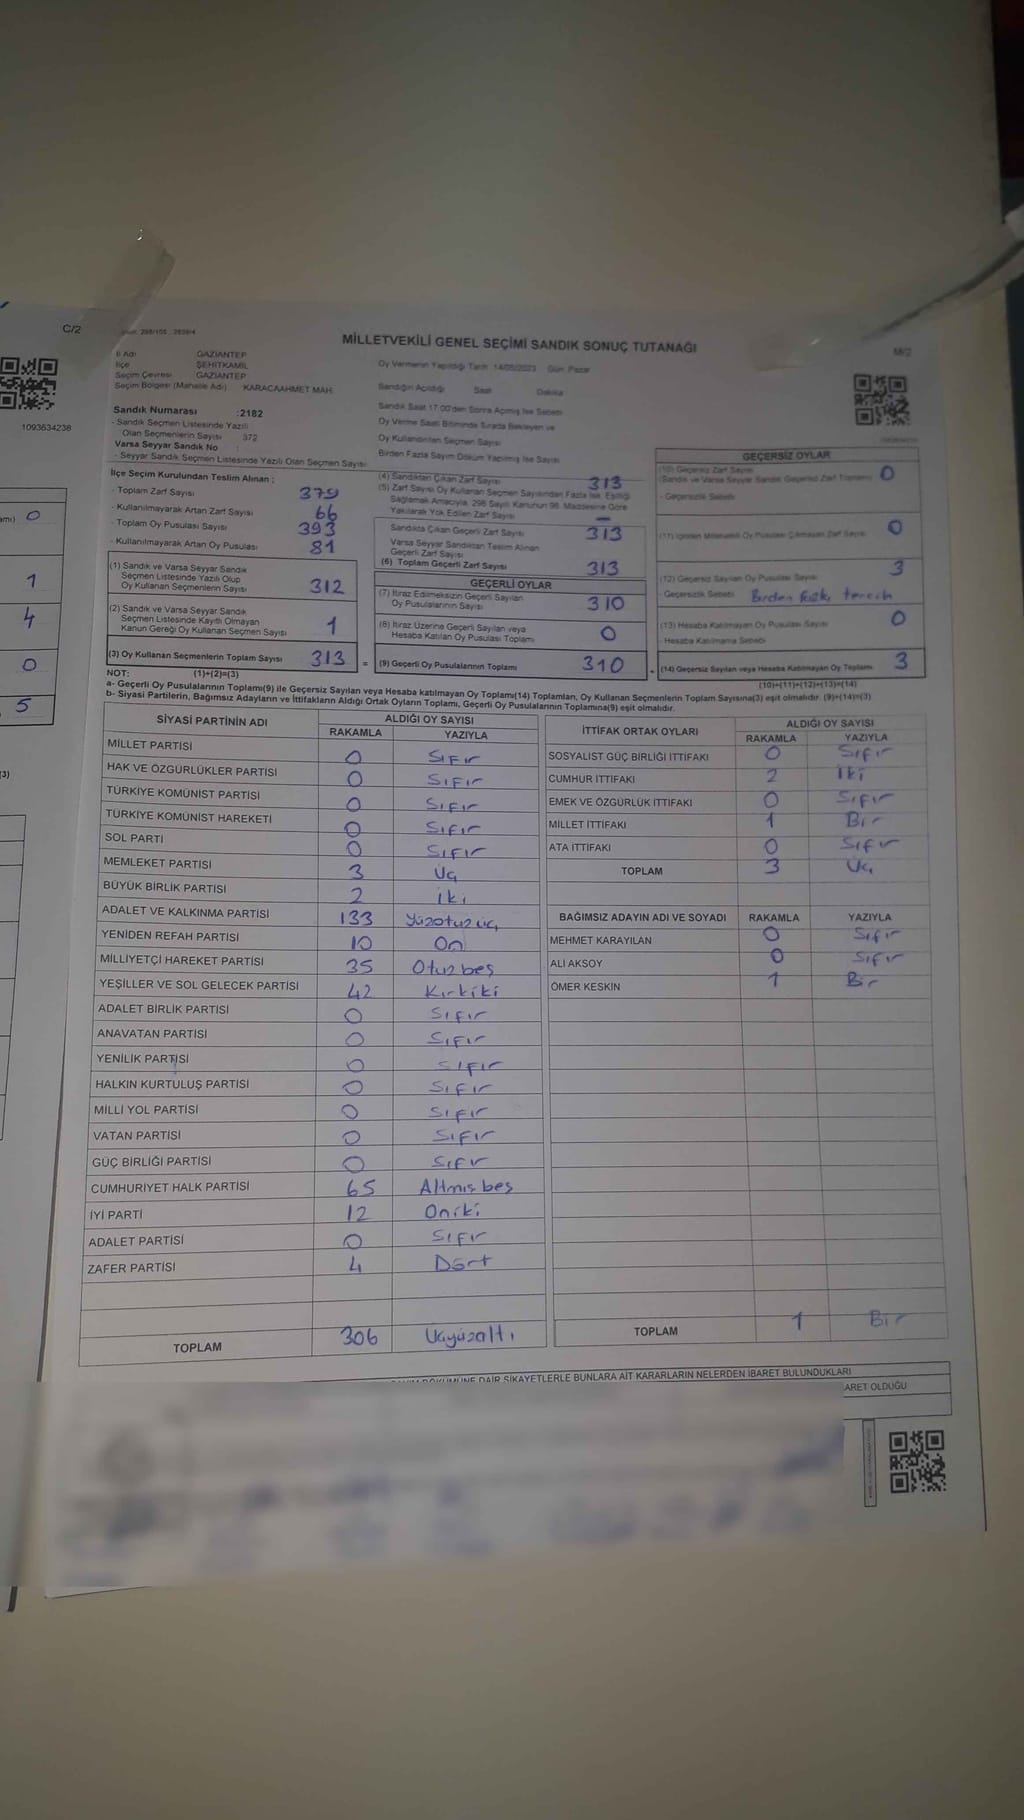 C/2
1093634238
0
1
4
0
5
MİLLETVEKİLİ GENEL SEÇİMİ SANDIK SONUÇ TUTANAĞI
M/2
İl Adı GAZİANTEP
İlçe ŞEHİTKAMİL
Seçim Çevresi GAZİANTEP
Seçim Bölgesi (Mahalle Adı) KARACAAHMET MAH.
Sandık Numarası :2182
- Sandık Seçmen Listesinde Yazılı
Olan Seçmenlerin Sayısı 372
Varsa Seyyar Sandık No
- Seyyar Sandık Seçmen Listesinde Yazılı Olan Seçmen Sayısı
Oy Vermenin Yapıldığı Tarih 14/05/2023 Gün Pazar
Sandığın Açıldığı Saat Dakika
Sandık Saat 17.00'den Sonra Açılmış İse Sebebi
Oy Verme Saati Bitiminde Sırada Bekleyen ve
Oy Kullandırılan Seçmen Sayısı
Birden Fazla Sayım Döküm Yapılmış İse Sayısı
İlçe Seçim Kurulundan Teslim Alınan ;
- Toplam Zarf Sayısı 379
- Kullanılmayarak Artan Zarf Sayısı 66
- Toplam Oy Pusulası Sayısı 393
- Kullanılmayarak Artan Oy Pusulası 81
(1) Sandık ve Varsa Seyyar Sandık
Seçmen Listesinde Yazılı Olup
Oy Kullanan Seçmenlerin Sayısı 312
(2) Sandık ve Varsa Seyyar Sandık
Seçmen Listesinde Kayıtlı Olmayan
Kanun Gereği Oy Kullanan Seçmen Sayısı 1
(3) Oy Kullanan Seçmenlerin Toplam Sayısı 313 =
(4) Sandıktan Çıkan Zarf Sayısı 313
(5) Zarf Sayısı Oy Kullanan Seçmen Sayısından Fazla İse, Eşitliği
Sağlamak Amacıyla, 298 Sayılı Kanunun 98. Maddesine Göre
Yakılarak Yok Edilen Zarf Sayısı —
Sandıkta Çıkan Geçerli Zarf Sayısı 313
Varsa Seyyar Sandıktan Teslim Alınan
Geçerli Zarf Sayısı
(6) Toplam Geçerli Zarf Sayısı 313
GEÇERLİ OYLAR
(7) İtiraz Edilmeksizin Geçerli Sayılan
Oy Pusulalarının Sayısı 310
(8) İtiraz Üzerine Geçerli Sayılan veya
Hesaba Katılan Oy Pusulası Toplamı 0
(9) Geçerli Oy Pusulalarının Toplamı 310
GEÇERSİZ OYLAR
(10) Geçersiz Zarf Sayısı
(Sandık ve Varsa Seyyar Sandık Geçersiz Zarf Toplamı) 0
- Geçersizlik Sebebi
(11) İçinden Milletvekili Oy Pusulası Çıkmayan Zarf Sayısı 0
(12) Geçersiz Sayılan Oy Pusulası Sayısı 3
- Geçersizlik Sebebi Birden fazla tercih
(13) Hesaba Katılmayan Oy Pusulası Sayısı 0
- Hesaba Katılmama Sebebi
(14) Geçersiz Sayılan veya Hesaba Katılmayan Oy Toplamı 3
NOT: (1)+(2)=(3)
(10)+(11)+(12)+(13)=(14)
a- Geçerli Oy Pusulalarının Toplamı(9) ile Geçersiz Sayılan veya Hesaba katılmayan Oy Toplamı(14) Toplamları, Oy Kullanan Seçmenlerin Toplam Sayısına(3) eşit olmalıdır. (9)+(14)=(3)
b- Siyasi Partilerin, Bağımsız Adayların ve İttifakların Aldığı Ortak Oyların Toplamı, Geçerli Oy Pusulalarının Toplamına(9) eşit olmalıdır.
SİYASİ PARTİNİN ADI ALDIĞI OY SAYISI
RAKAMLA YAZIYLA
MİLLET PARTİSİ 0 Sıfır
HAK VE ÖZGÜRLÜKLER PARTİSİ 0 Sıfır
TÜRKİYE KOMÜNİST PARTİSİ 0 Sıfır
TÜRKİYE KOMÜNİST HAREKETİ 0 Sıfır
SOL PARTİ 0 Sıfır
MEMLEKET PARTİSİ 3 Üç
BÜYÜK BİRLİK PARTİSİ 2 iki
ADALET VE KALKINMA PARTİSİ 133 Yüzotuzüç
YENİDEN REFAH PARTİSİ 10 On
MİLLİYETÇİ HAREKET PARTİSİ 35 Otuzbeş
YEŞİLLER VE SOL GELECEK PARTİSİ 42 Kırkiki
ADALET BİRLİK PARTİSİ 0 Sıfır
ANAVATAN PARTİSİ 0 Sıfır
YENİLİK PARTİSİ 0 Sıfır
HALKIN KURTULUŞ PARTİSİ 0 Sıfır
MİLLİ YOL PARTİSİ 0 Sıfır
VATAN PARTİSİ 0 Sıfır
GÜÇ BİRLİĞİ PARTİSİ 0 Sıfır
CUMHURİYET HALK PARTİSİ 65 Altmışbeş
İYİ PARTİ 12 Oniki
ADALET PARTİSİ 0 Sıfır
ZAFER PARTİSİ 4 Dört
TOPLAM 306 Üçyüzaltı
İTTİFAK ORTAK OYLARI ALDIĞI OY SAYISI
RAKAMLA YAZIYLA
SOSYALİST GÜÇ BİRLİĞİ İTTİFAKI 0 Sıfır
CUMHUR İTTİFAKI 2 İki
EMEK VE ÖZGÜRLÜK İTTİFAKI 0 Sıfır
MİLLET İTTİFAKI 1 Bir
ATA İTTİFAKI 0 Sıfır
TOPLAM 3 Üç
BAĞIMSIZ ADAYIN ADI VE SOYADI RAKAMLA YAZIYLA
MEHMET KARAYILAN 0 Sıfır
ALİ AKSOY 0 Sıfır
ÖMER KESKİN 1 Bir
TOPLAM 1 Bir
DÖKÜMÜNE DAİR ŞİKAYETLERLE BUNLARA AİT KARARLARIN NELERDEN İBARET BULUNDUKLARI
ARET OLDUĞU